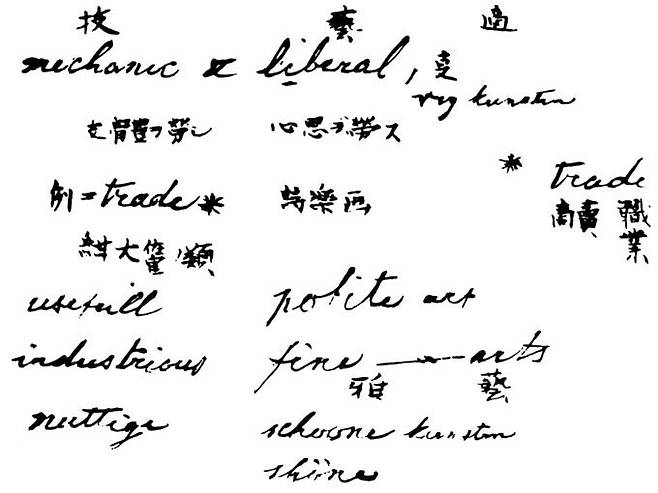 技 藝
mechanic & liberal,
vry kunsten
心思ヲ勞ス
* trade
例 = trade *
商賣 職業
大 類
usefull polite art
industrious fine — arts
雅 藝
nuttige schoone kunsten
shöne